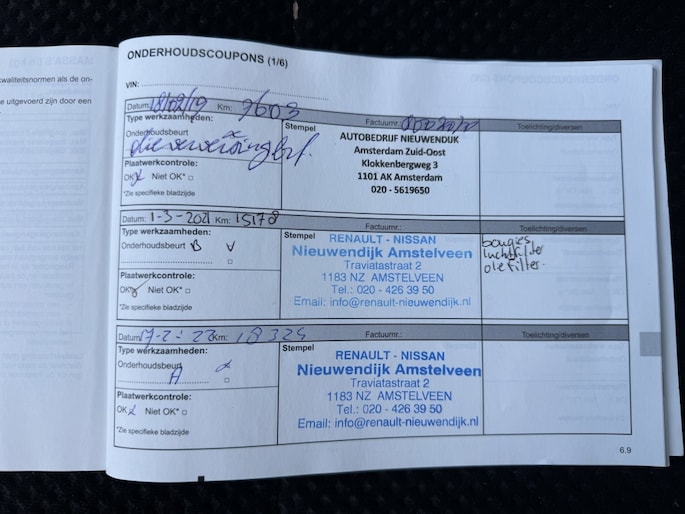 MASSA'S (in kg)
kwaliteitsnormen als de on-
e uitgevoerd zijn door een
ONDERHOUDSCOUPONS (1/6)
VIN:
Datum: 18/02/19 Km: 9603 Factuurnr.:
Type werkzaamheden: Stempel Toelichting/diversen
Onderhoudsbeurt
AUTOBEDRIJF NIEUWENDIJK
Amsterdam Zuid-Oost
Klokkenbergweg 3
1101 AK Amsterdam
020 - 5619650
Plaatwerkcontrole:
OK Niet OK* □
*Zie specifieke bladzijde
Datum: 1-3-2021 Km: 15178 Factuurnr.: Toelichting/diversen
Type werkzaamheden: Stempel
Onderhoudsbeurt B V
RENAULT - NISSAN
Nieuwendijk Amstelveen
Traviatastraat 2
1183 NZ AMSTELVEEN
Tel.: 020 - 426 39 50
Email: info@renault-nieuwendijk.nl
bougies
luchtfilter
oliefilter.
Plaatwerkcontrole:
OK Niet OK* □
*Zie specifieke bladzijde
Datum: 17-2-22 Km: 18324 Factuurnr.: Toelichting/diversen
Type werkzaamheden: Stempel
Onderhoudsbeurt
A
RENAULT - NISSAN
Nieuwendijk Amstelveen
Traviatastraat 2
1183 NZ AMSTELVEEN
Tel.: 020 - 426 39 50
Email: info@renault-nieuwendijk.nl
Plaatwerkcontrole:
OK Niet OK* □
*Zie specifieke bladzijde
6.9